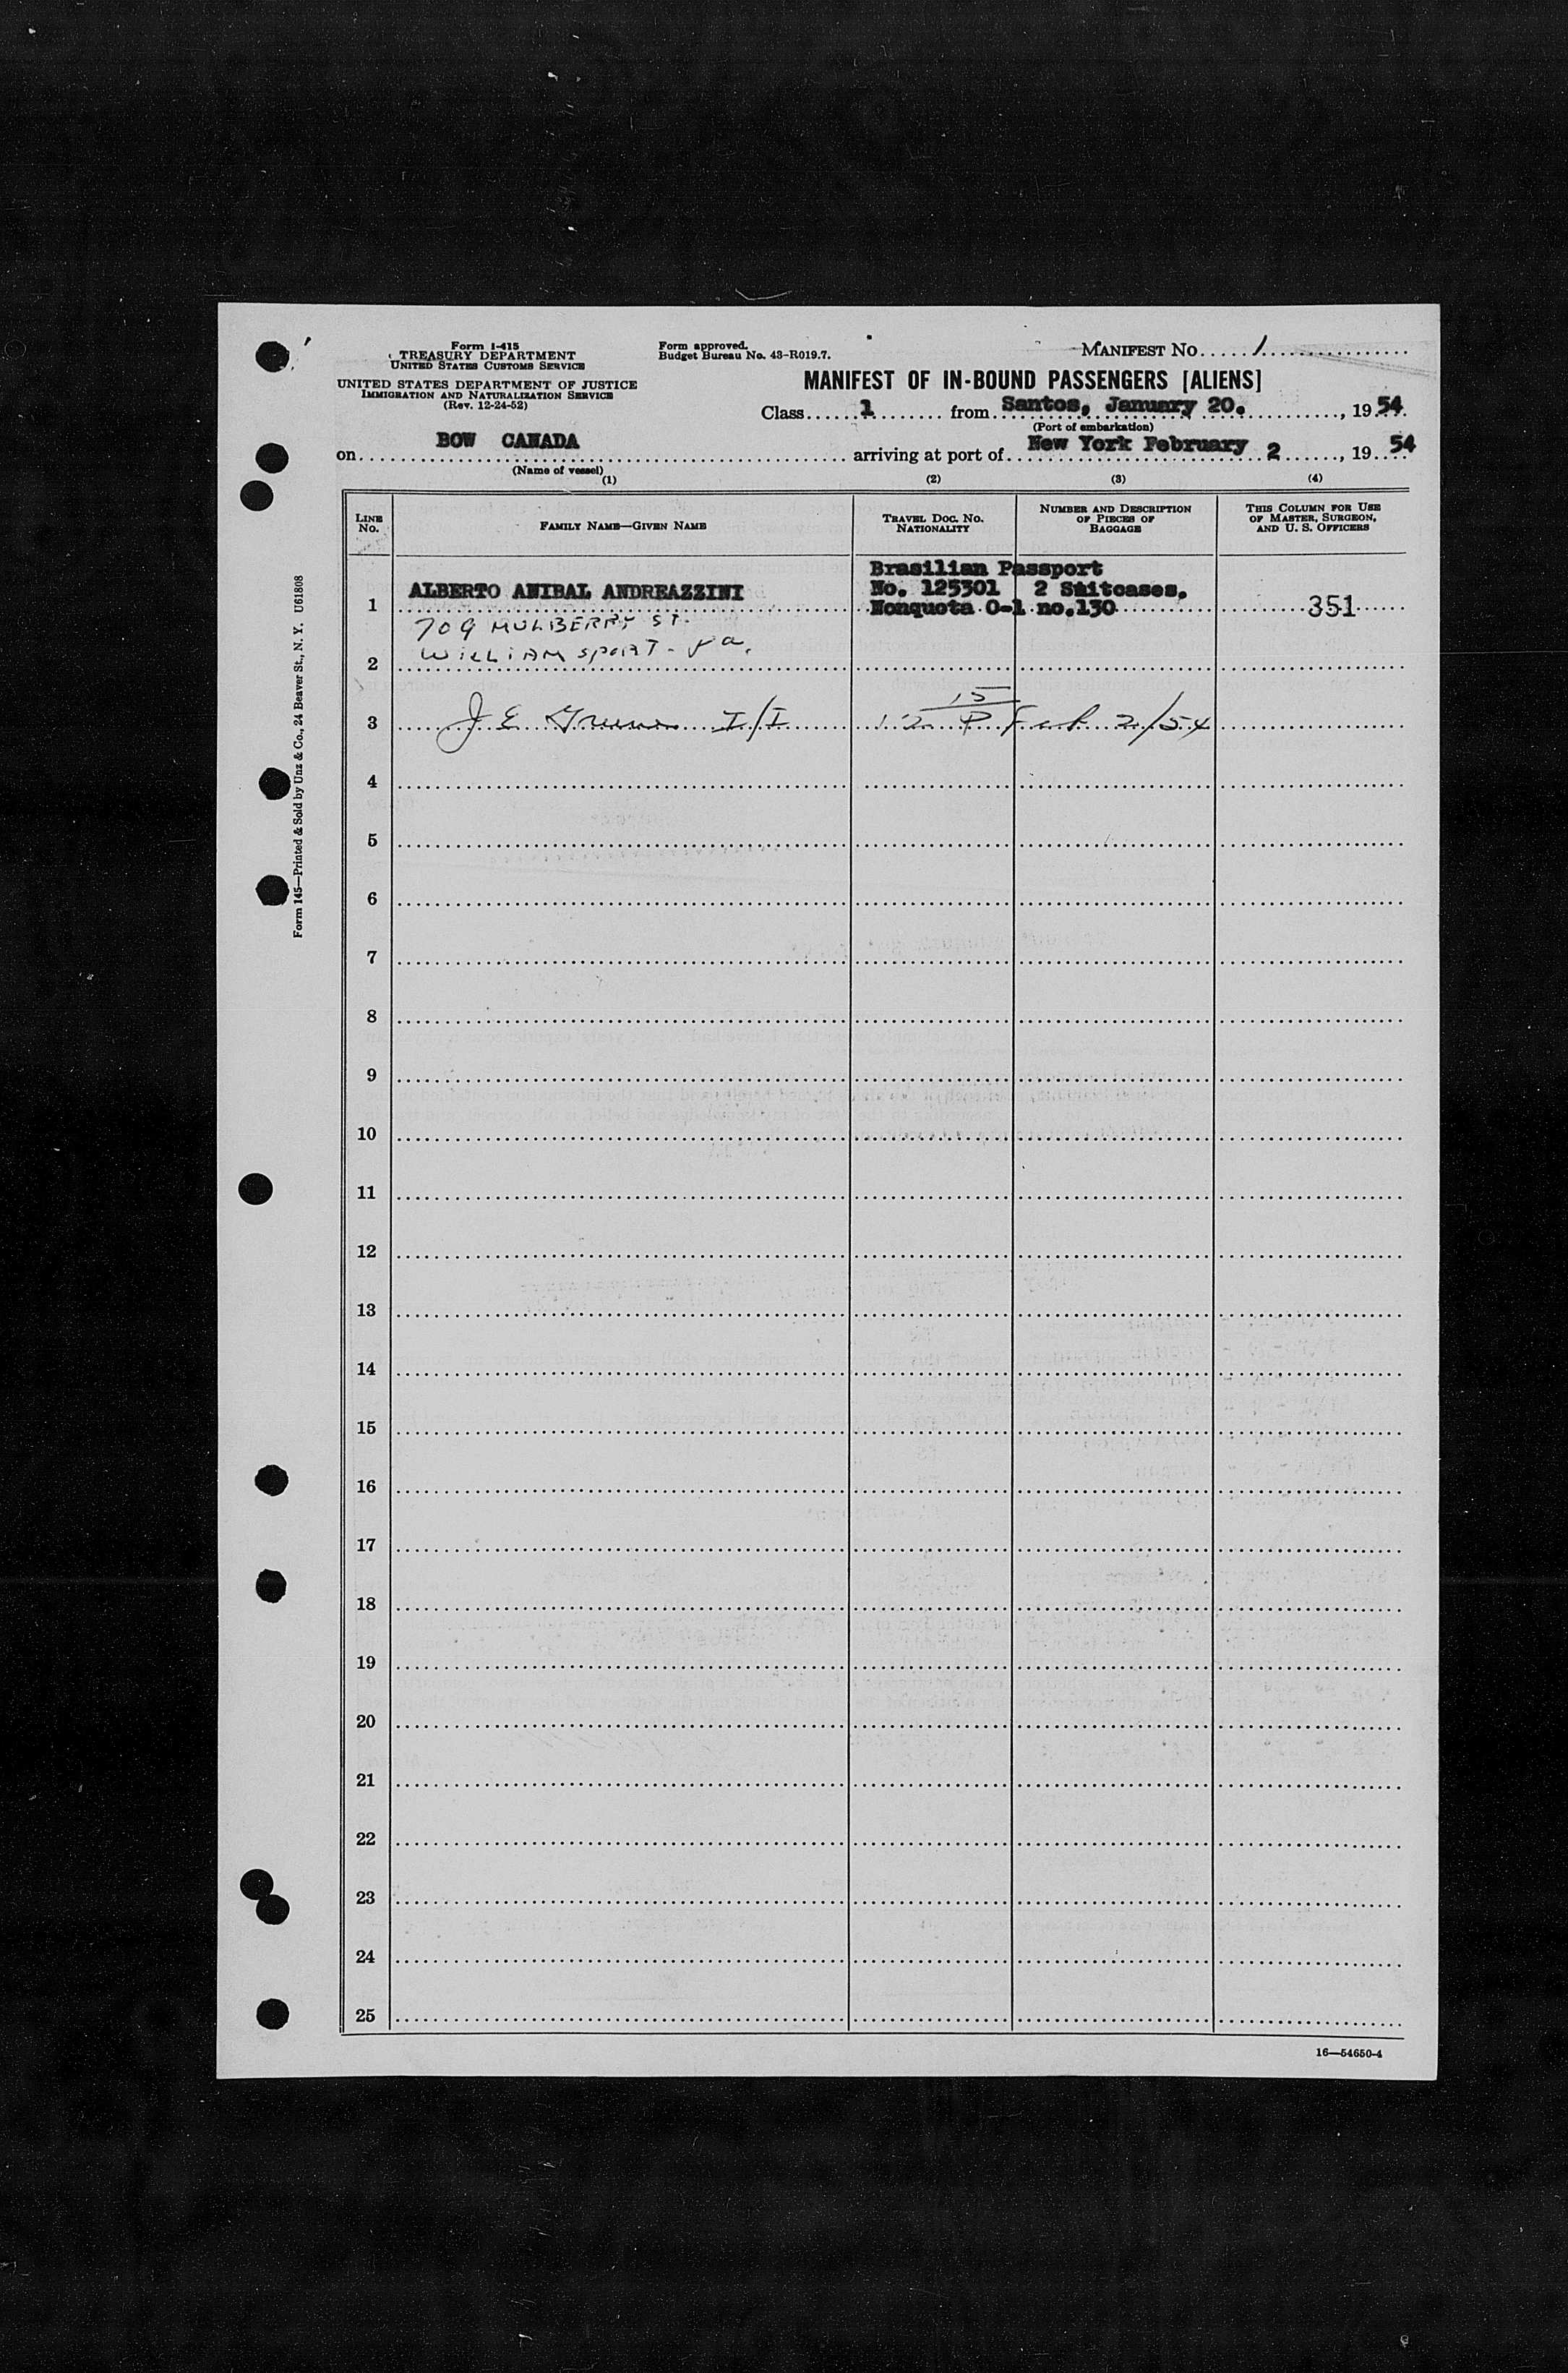 Form I-415
TREASURY DEPARTMENT
UNITED STATES CUSTOMS SERVICE
UNITED STATES DEPARTMENT OF JUSTICE
IMMIGRATION AND NATURALIZATION SERVICE
(Rev. 12-24-52)
Form approved.
Budget Bureau No. 43-R019.7.
MANIFEST No.....1................
MANIFEST OF IN-BOUND PASSENGERS [ALIENS]
Class......1........ from Santos, January 20. ............, 19 54
(Port of embarkation)
on BOW CANADA arriving at port of New York February 2 ......, 19 54
(Name of vessel)
(1) (2) (3) (4)
LINE No. FAMILY NAME—GIVEN NAME TRAVEL DOC. NO. NATIONALITY NUMBER AND DESCRIPTION OF PIECES OF BAGGAGE THIS COLUMN FOR USE OF MASTER, SURGEON, AND U. S. OFFICERS
Brasilian Passport
1 ALBERTO ANIBAL ANDREAZZINI No. 125301 2 Suitcases.
Nonquota O-1 no.130 351
709 MULBERRY ST.
2 WILLIAMSPORT - Pa.
3 J E Greene I/I 12 15 P Feb 2/54
4
5
6
7
8
9
10
11
12
13
14
15
16
17
18
19
20
21
22
23
24
25
16—54650-4
Form 145—Printed & Sold by Unz & Co., 24 Beaver St., N. Y. U61808